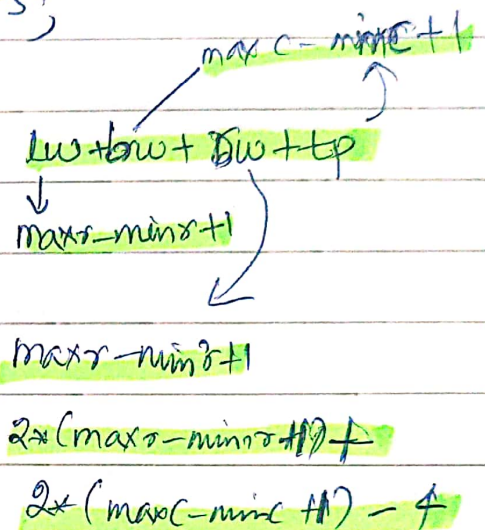 max c - minc + 1
lw + bw + rw + tp
maxr - minr + 1
maxr - minr + 1
2*(maxr - minr + 1) +
2*(maxc - minc + 1) - 4